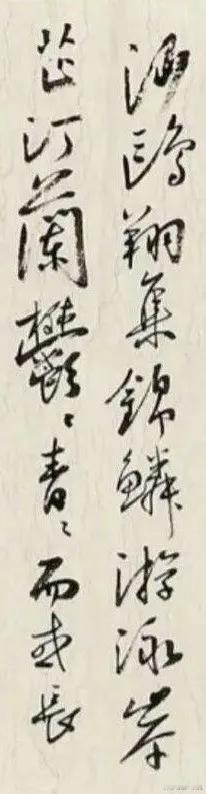 沙鷗翔集錦鱗游泳岸
芷汀蘭鬱〻青〻而或長